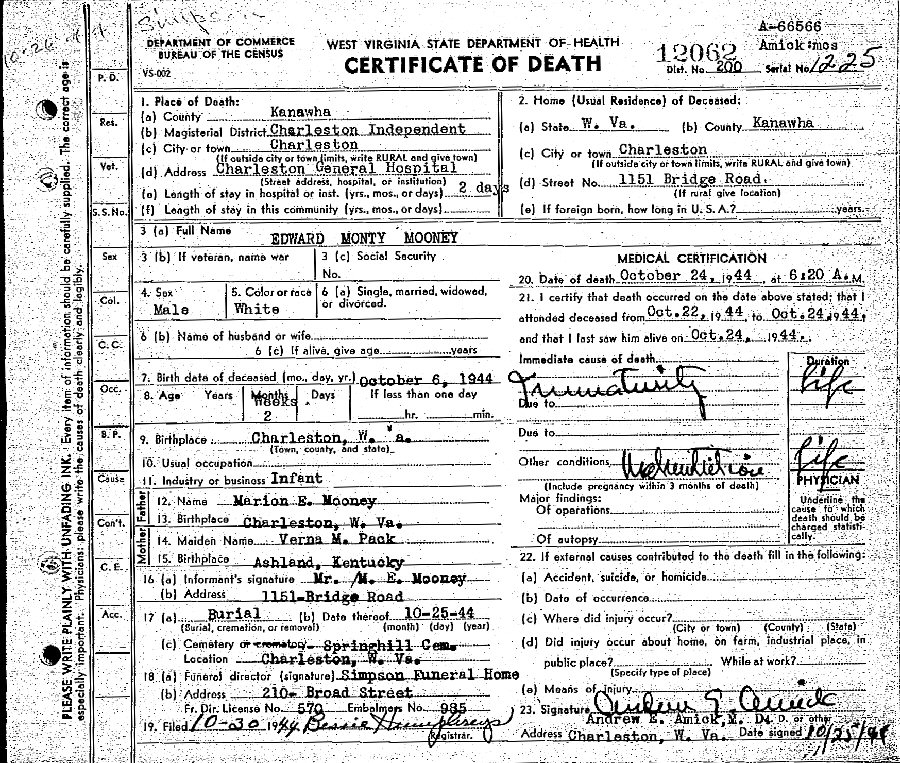 Simpson
A-66566
DEPARTMENT OF COMMERCE
BUREAU OF THE CENSUS
VS-002
WEST VIRGINIA STATE DEPARTMENT OF HEALTH
CERTIFICATE OF DEATH
12062
Amick :mos
Dist. No. 200 Serial No. 1225
PLEASE WRITE PLAINLY WITH UNFADING INK. Every item of information should be carefully supplied. The correct age is
especially important. Physicians: please write the causes of death clearly and legibly.
P. D.
Res.
Vet.
S.S.No.
Sex
Col.
C.C.
Occ.
B. P.
Cause
Con't.
C. E.
Acc.
1. Place of Death:
(a) County Kanawha
(b) Magisterial District Charleston Independent
(c) City or town Charleston
(If outside city or town limits, write RURAL and give town)
(d) Address Charleston General Hospital
(Street address, hospital, or institution)
(e) Length of stay in hospital or inst. (yrs., mos., or days) 2 days
(f) Length of stay in this community (yrs., mos., or days)
2. Home (Usual Residence) of Deceased:
(a) State W. Va. (b) County Kanawha
(c) City or town Charleston
(If outside city or town limits, write RURAL and give town)
(d) Street No. 1151 Bridge Road.
(If rural give location)
(e) If foreign born, how long in U. S. A.? years.
3 (a) Full Name EDWARD MONTY MOONEY
3 (b) If veteran, name war
3 (c) Social Security
No.
4. Sex
Male
5. Color or race
White
6 (a) Single, married, widowed,
or divorced.
6 (b) Name of husband or wife
6 (c) If alive, give age years
7. Birth date of deceased (mo., day, yr.) October 6, 1944
8. Age Years Months Days If less than one day
Weeks
2 hr. min.
9. Birthplace Charleston, W. Va.
(Town, county, and state)
10. Usual occupation
11. Industry or business Infant
Father
12. Name Marion E. Mooney
13. Birthplace Charleston, W. Va.
Mother
14. Maiden Name Verna M. Pack
15. Birthplace Ashland, Kentucky
16 (a) Informant's signature Mr. /M. E. Mooney
(b) Address 1151-Bridge Road
17 (a) Burial (b) Date thereof 10-25-44
(Burial, cremation, or removal) (month) (day) (year)
(c) Cemetery or crematory Springhill Cem.
Location Charleston, W. Va.
18 (a) Funeral director (signature) Simpson Funeral Home
(b) Address 210- Broad Street
Fr. Dir. License No. 570 Embalmers No. 985
19. Filed 10-30 1944 Bessie Humphreys
Registrar.
MEDICAL CERTIFICATION
20. Date of death October 24, 1944, at 6:20 A. M.
21. I certify that death occurred on the date above stated; that I
attended deceased from Oct. 22, 1944, to Oct. 24, 1944,
and that I last saw him alive on Oct. 24, 1944.
Immediate cause of death Duration
Immaturity Life
Due to
Due to
Other conditions Malnutrition Life
(Include pregnancy within 3 months of death)
PHYSICIAN
Underline the cause to which death should be charged statistically.
Major findings:
Of operations
Of autopsy
22. If external causes contributed to the death fill in the following:
(a) Accident, suicide, or homicide
(b) Date of occurrence
(c) Where did injury occur?
(City or town) (County) (State)
(d) Did injury occur about home, on farm, industrial place, in
public place? While at work?
(Specify type of place)
(e) Means of injury
23. Signature Andrew E. Amick
Andrew E. Amick, M. D. D. or other
Address Charleston, W. Va. Date signed 10/25/44